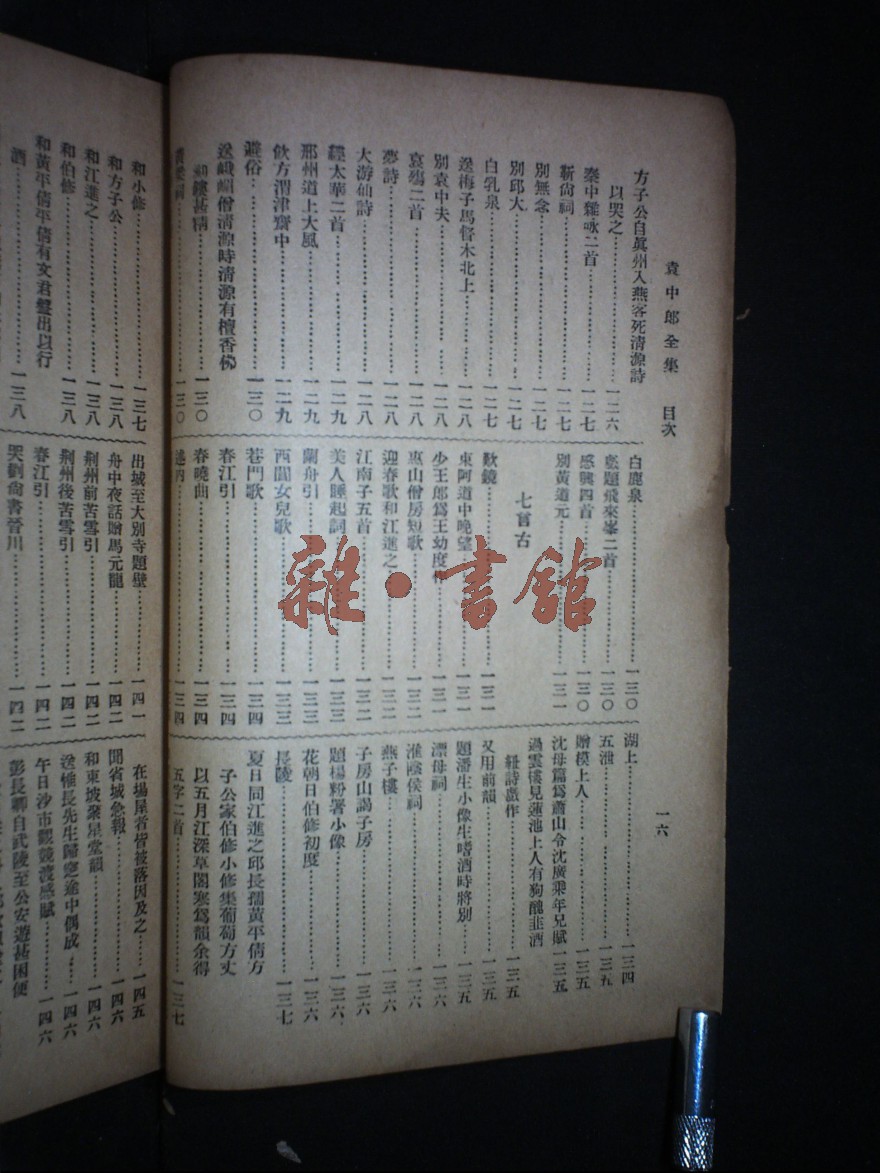 袁中郎全集 目次
一六
方子公自眞州入燕客死清源詩
以哭之……一二六
秦中雜咏二首……一二七
靳尙祠……一二七
別無念……一二七
別邱大……一二七
白乳泉……一二七
送梅子馬督木北上……一二八
別袁中夫……一二八
哀殤二首……一二八
夢詩……一二八
大游仙詩……一二八
經太華二首……一二九
邢州道上大風……一二九
飲方渭津齋中……一二九
避俗……一三〇
送峨嵋僧清源時清源有檀香佛
刻鏤甚精……一三〇
一三〇
白鹿泉……一三〇
戲題飛來峯二首……一三〇
感興四首……一三〇
別黃道元……一三一
七言古
歎鏡……一三一
東阿道中晚望……一三一
少王郎爲王幼度作……一三一
惠山僧房短歌……一三二
迎春歌和江進之……一三二
江南子五首……一三二
美人睡起詞……一三三
蘭舟引……一三三
西閶女兒歌……一三三
巷門歌……一三四
春江引……一三四
春曉曲……一三四
一三四
湖上……一三四
五泄……一三五
贈模上人……一三五
沈母篇爲蕭山令沈廣乘年兄賦……一三五
過雲樓見蓮池上人有狗醜韭酒
紐詩戲作……一三五
又用前韻……一三五
題潘生小像生嗜酒時將別……一三五
漂母祠……一三六
淮陰侯祠……一三六
燕子樓……一三六
子房山謁子房……一三六
題楊粉署小像……一三六
花朝日伯修初度……一三六
長陵……一三七
夏日同江進之邱長孺黃平倩方
子公家伯修小修集葡萄方丈
以五月江深草閣寒爲韻余得
五字二首……一三七
和小修……一三七
和方子公……一三八
和江進之……一三八
和伯修……一三八
和黃平倩平倩有文君謦出以行
酒……一三八
出城至大別寺題壁……一四一
舟中夜話贈馬元龍……一四二
荆州前苦雪引……一四二
荆州後苦雪引……一四二
春江引……一四二
哭劉尙書晉川……一四二
在場屋者皆被落因及之……一四五
聞省城急報……一四六
和東坡聚星堂韻……一四六
送惟長先生歸窆途中偶成……一四六
午日沙市觀競渡感賦……一四六
彭長卿自武陵至公安遊甚困便
雜·書館